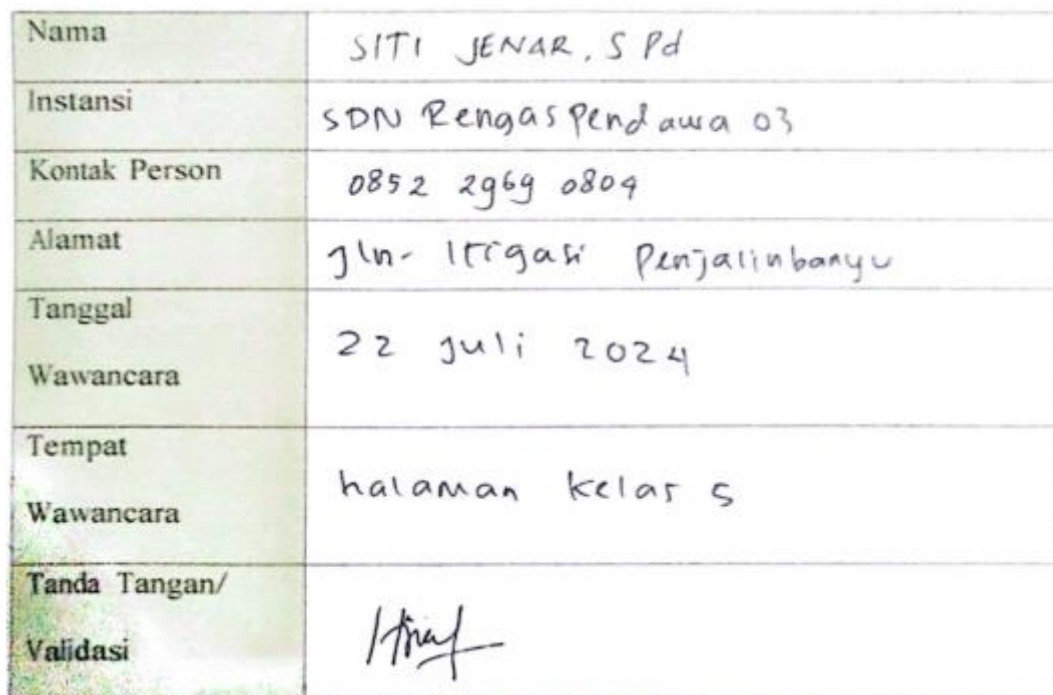 Nama SITI JENAR, S Pd
Instansi SDN Rengaspendawa 03
Kontak Person 0852 2969 0804
Alamat Jln. Irigasi Penjalinbanyu
Tanggal
Wawancara 22 Juli 2024
Tempat
Wawancara halaman kelas 5
Tanda Tangan/
Validasi